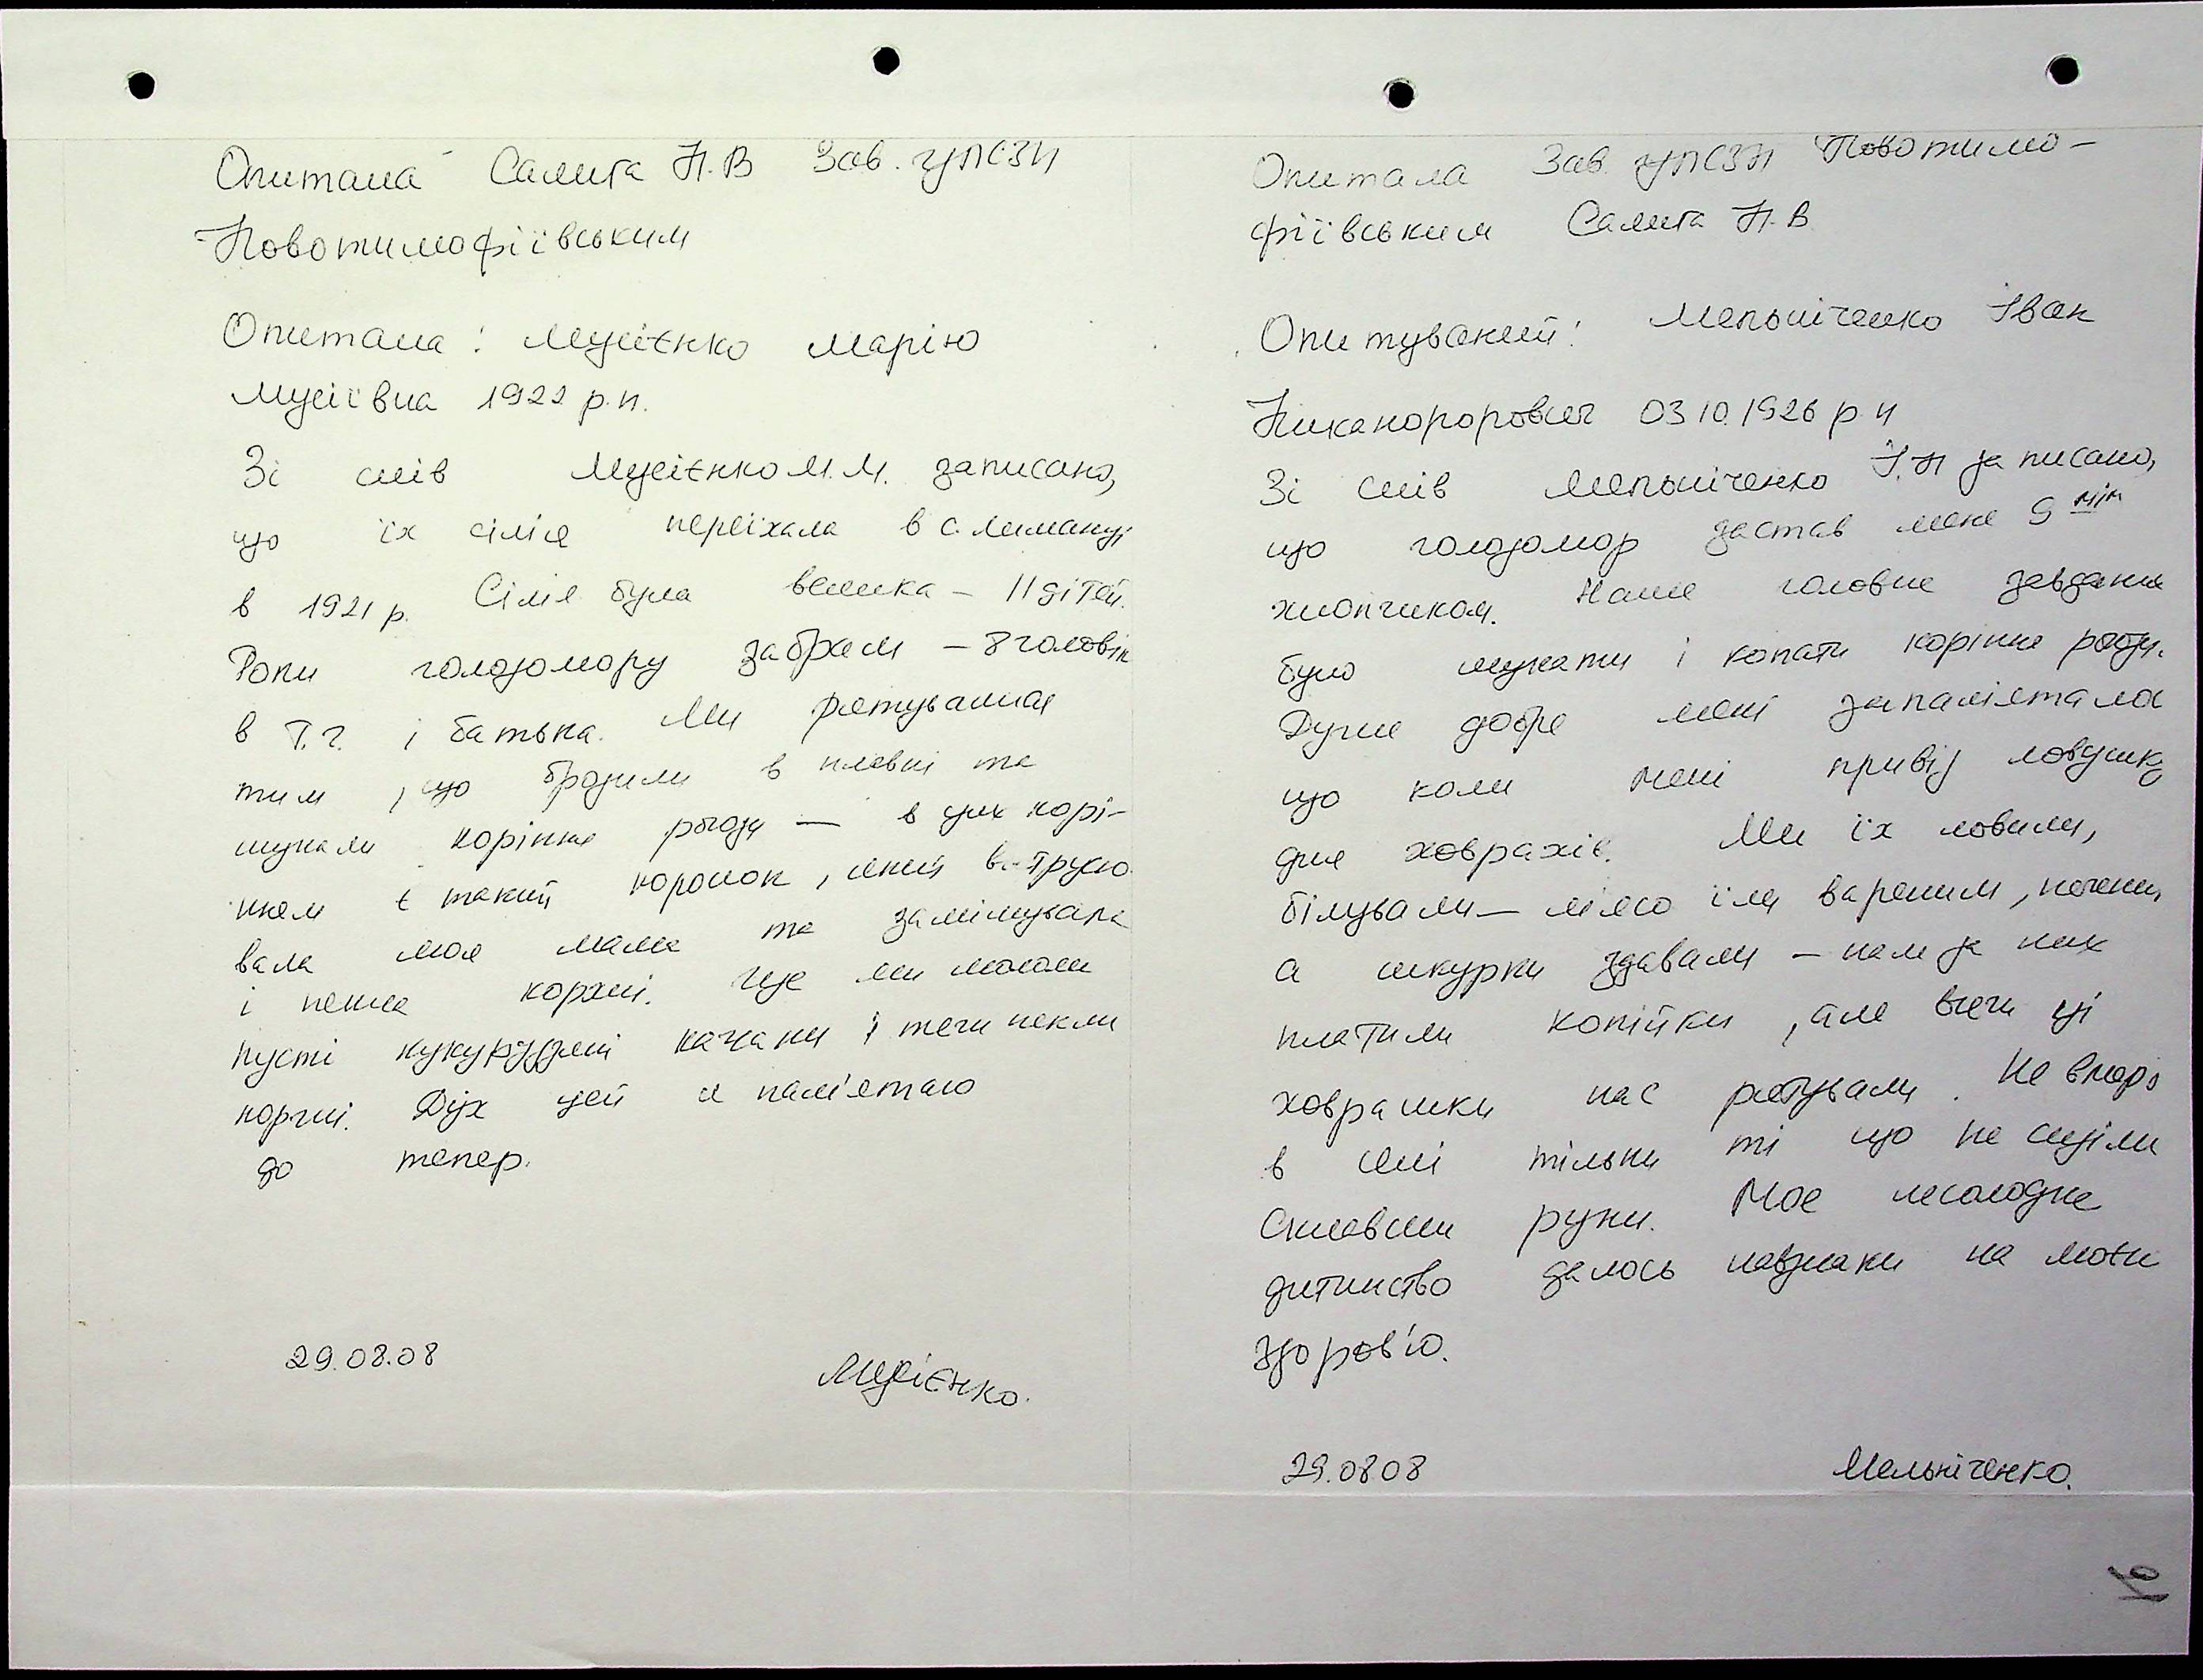 Опитала Салига Н.В Зав. ЦПСЗН
Новотимофіївським
Опитана: Мусієнко Марію
Мусіївна 1922 р.н.
Зі слів Мусієнко М.М. записано,
що їх сімія переїхала в с. Лиманці
в 1921 р. Сімія була велика – 11 дітей.
Роки голодомору забрали – 8 чоловік
в т.г. і батька. Ми рятувалися
тим, що бродили в плавні та
шукали коріння рогози — в цих корі-
нням є такий порошок, який витрушу
вала моя мама та замішувала
і пекла коржі. Ще ми мололи
пусті кукурудзяні качани і теж пекли
коржі. Дух цей я пам'ятаю
до тепер.
29.08.08
Мусієнко.
Опитала Зав. ЦПСЗН Новотимо-
фіївським Салига Н.В
Опитуваний: Мельніченко Іван
Никанорорович 03 10. 1926 р н
Зі слів Мельніченко І.Н записано,
що голодомор застав мене 9 літ
хлопчиком. Наше головне завдання
було шукати і копати коріння рогози.
Дуже добре мені запамяталось
що коли мені привіз ловушку
для ховрахів. Ми їх ловили,
білували – мясо їли вареним, печеним,
а шкурки здавали – нам за них
платили копійки, але вжеж ці
ховрашки нас рятували. Не вмерли
в селі тільки ті що не сиділи
склавши руки. Моє несолодке
дитинство далось навзнаки на моєму
здоров'ю.
29.08 08
Мельніченко.
10